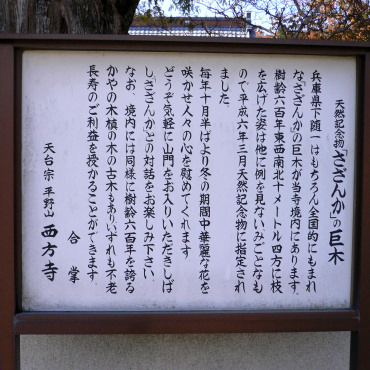 天然記念物「さざんか」の巨木
兵庫県下随一はもちろん全国的にもまれ
な「さざんか」の巨木が当寺境内にあります
樹齢六百年東西南北十メートル四方に枝
を広げた姿は他に例を見ないみごとなも
ので平成六年三月天然記念物に指定され
ました。
毎年十月半ばより冬の期間中華麗な花を
咲かせ人々の心を慰めてくれます
どうぞ気軽に山門をお入りいただきしば
し「さざんか」との対話をお楽しみ下さい。
なお、境内には同様に樹齢六百年を誇る
かやの木槙の木の古木もありいずれも不老
長寿のご利益を授かることができます
合掌
天台宗 平野山 西方寺